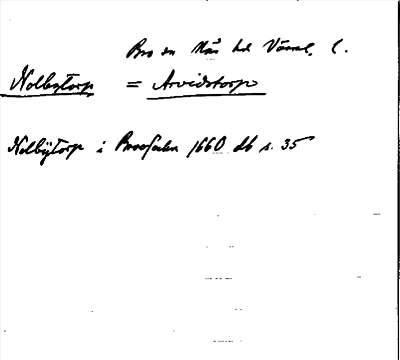 Bro sn Näs hd Värml. l.
Nolbytorp = Arvidstorp
Nolbÿtorp i Brosocken 1660 db s. 35